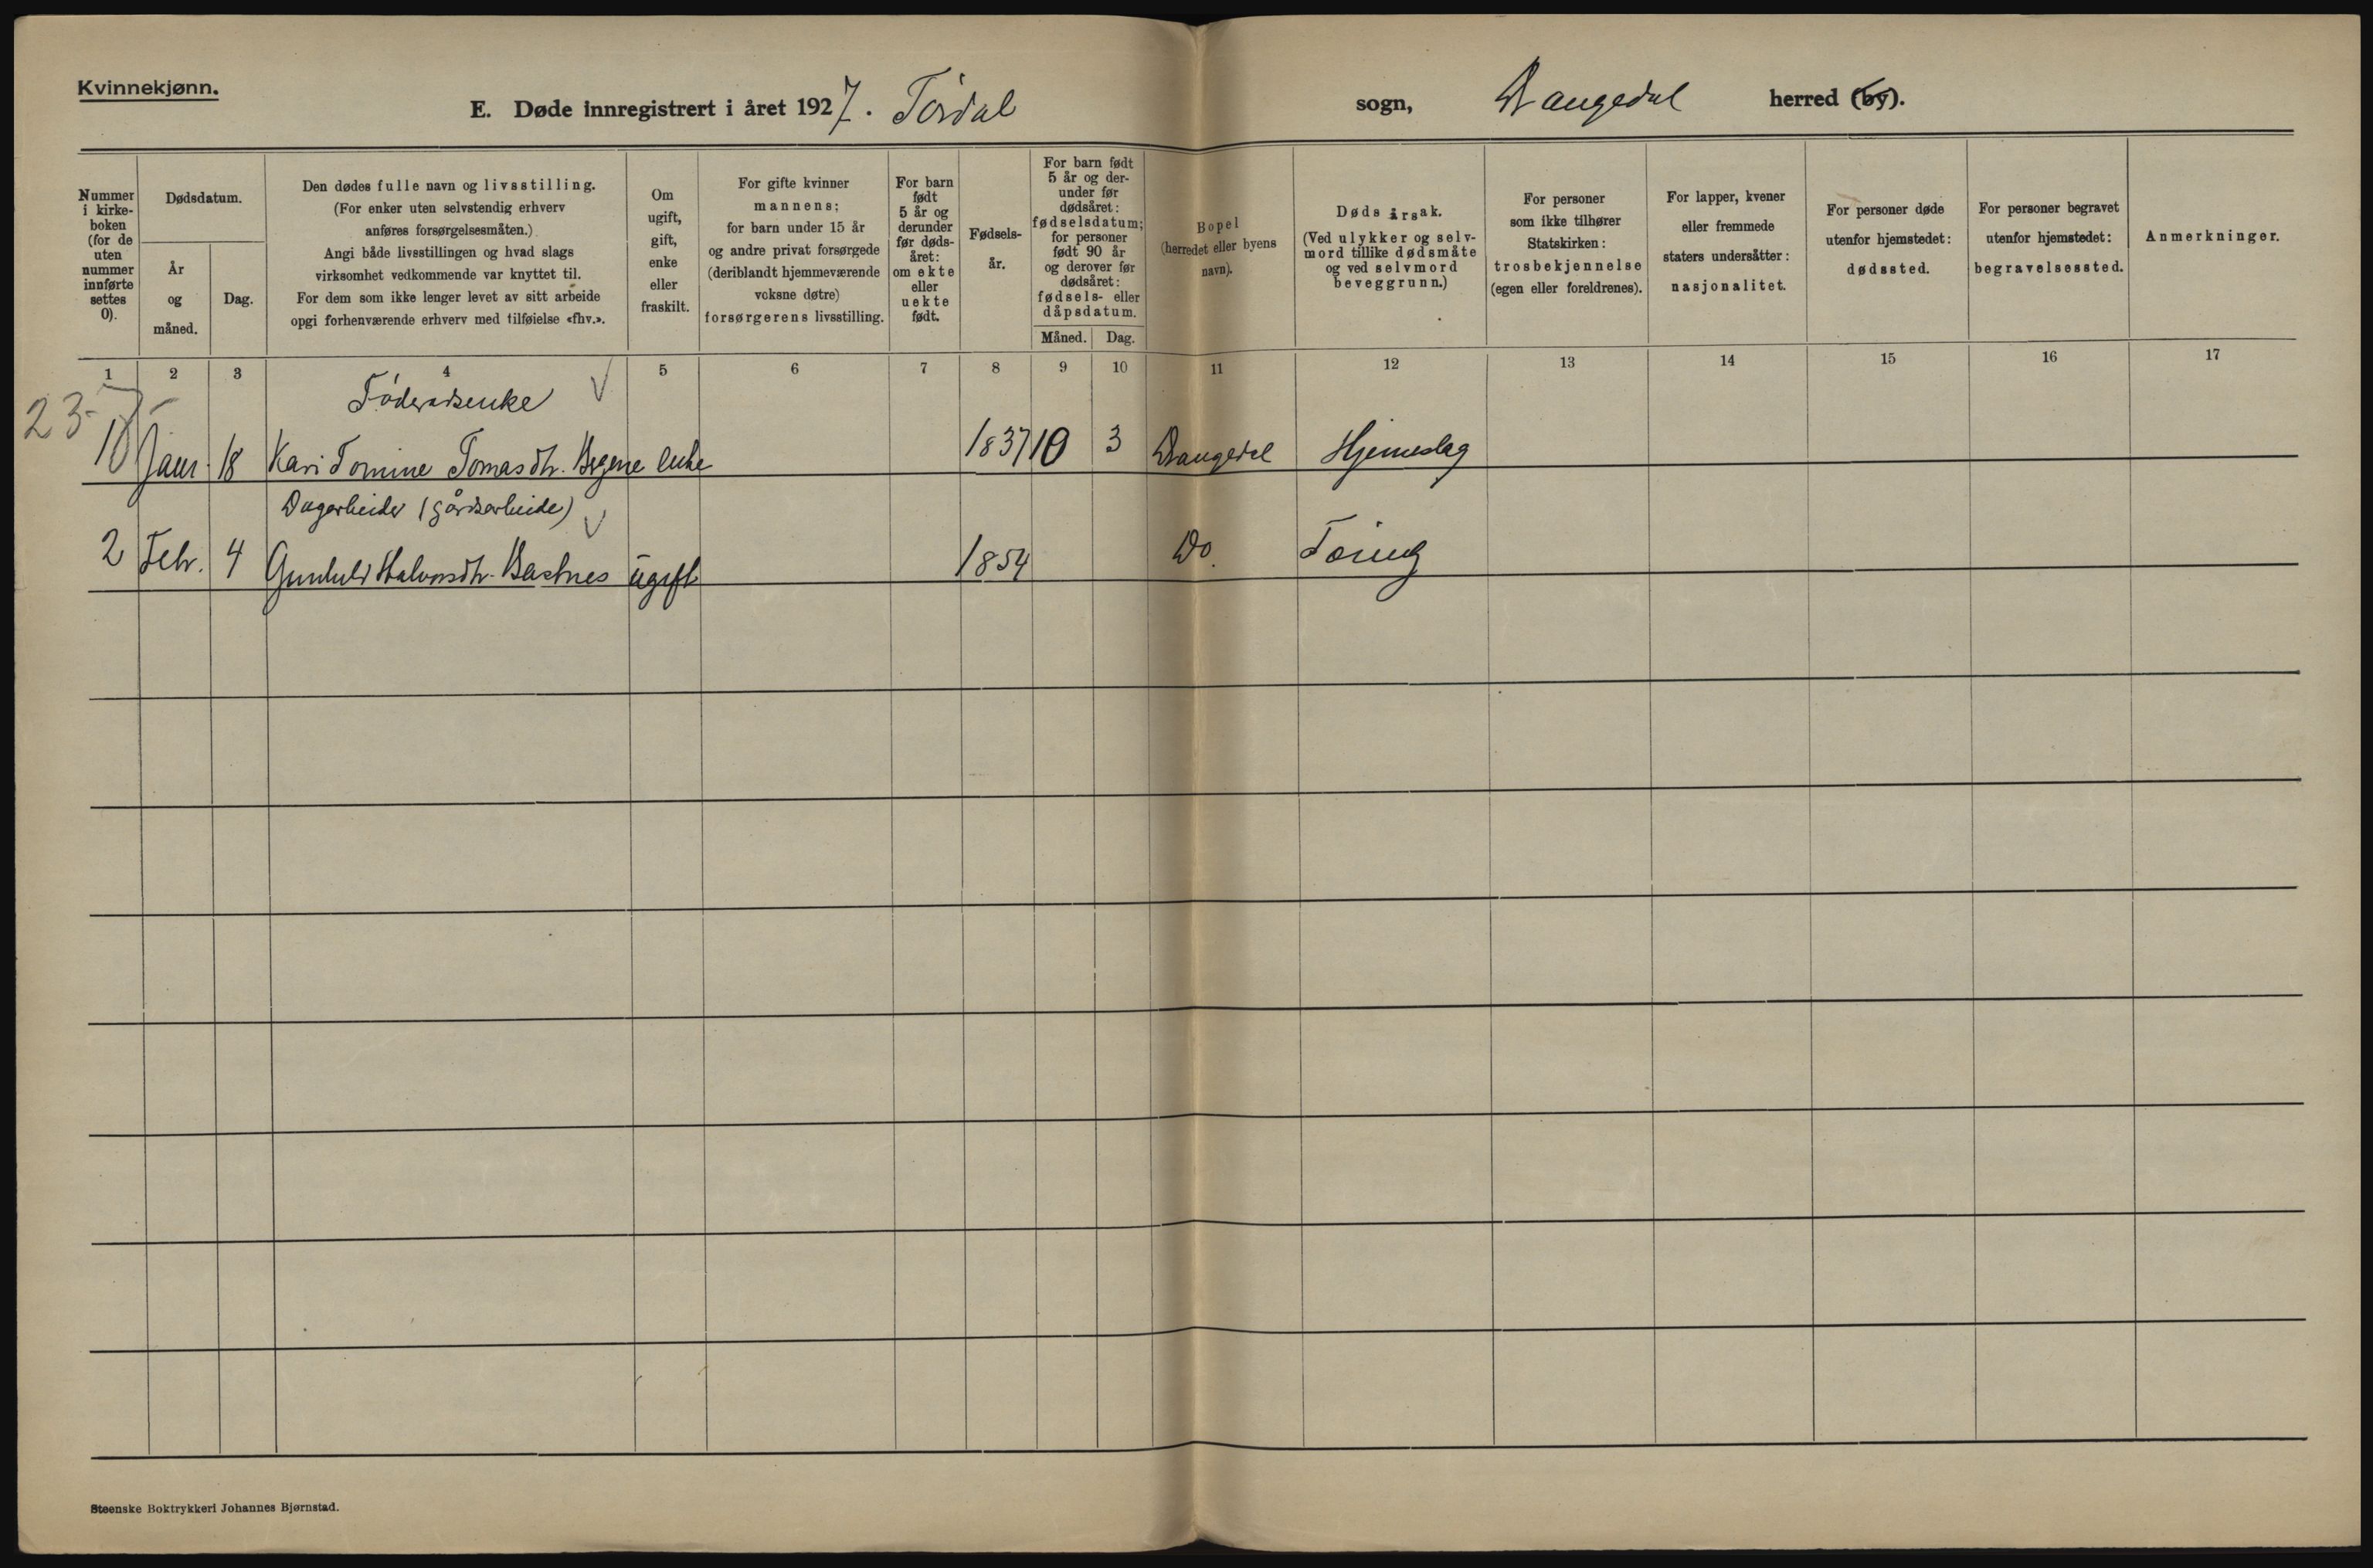 Kvinnekjønn.
E. Døde innregistrert i året 1927. Tørdal sogn, Drangedal herred (by).
Nummer i kirke-boken (for de uten nummer innførte settes 0).
Dødsdatum.
År og måned.
Dag.
Den dødes fulle navn og livsstilling.
(For enker uten selvstendig erhverv
anføres forsørgelsesmåten.)
Angi både livsstillingen og hvad slags
virksomhet vedkommende var knyttet til.
For dem som ikke lenger levet av sitt arbeide
opgi forhenværende erhverv med tilføielse «fhv.».
Om
ugift,
gift,
enke
eller
fraskilt.
For gifte kvinner
mannens;
for barn under 15 år
og andre privat forsørgede
(deriblandt hjemmeværende
voksne døtre)
forsørgerens livsstilling.
For barn
født
5 år og
derunder
før døds-
året:
om ekte
eller
uekte
født.
Fødsels-
år.
For barn født
5 år og der-
under før
dødsåret:
fødselsdatum;
for personer
født 90 år
og derover før
dødsåret:
fødsels- eller
dåpsdatum.
Måned. Dag.
Bopel
(herredet eller byens
navn).
Dødsårsak.
(Ved ulykker og selv-
mord tillike dødsmåte
og ved selvmord
beveggrunn.)
For personer
som ikke tilhører
Statskirken:
trosbekjennelse
(egen eller foreldrenes).
For lapper, kvener
eller fremmede
staters undersåtter:
nasjonalitet.
For personer døde
utenfor hjemstedet:
dødssted.
For personer begravet
utenfor hjemstedet:
begravelsessted.
Anmerkninger.
1 2 3 4 5 6 7 8 9 10 11 12 13 14 15 16 17
23-
Föderadsenke
Janr. 18 Kari Tomine Tomasdtr. enke 1837 10 3 Drangedal Hjerneslag
Dagarbeider (gårdsarbeide)
2 Febr. 4 Gunhild Halvorsdtr. Bastnes ugift 1854 Do. Tæring
Steenske Boktrykkeri Johannes Bjørnstad.